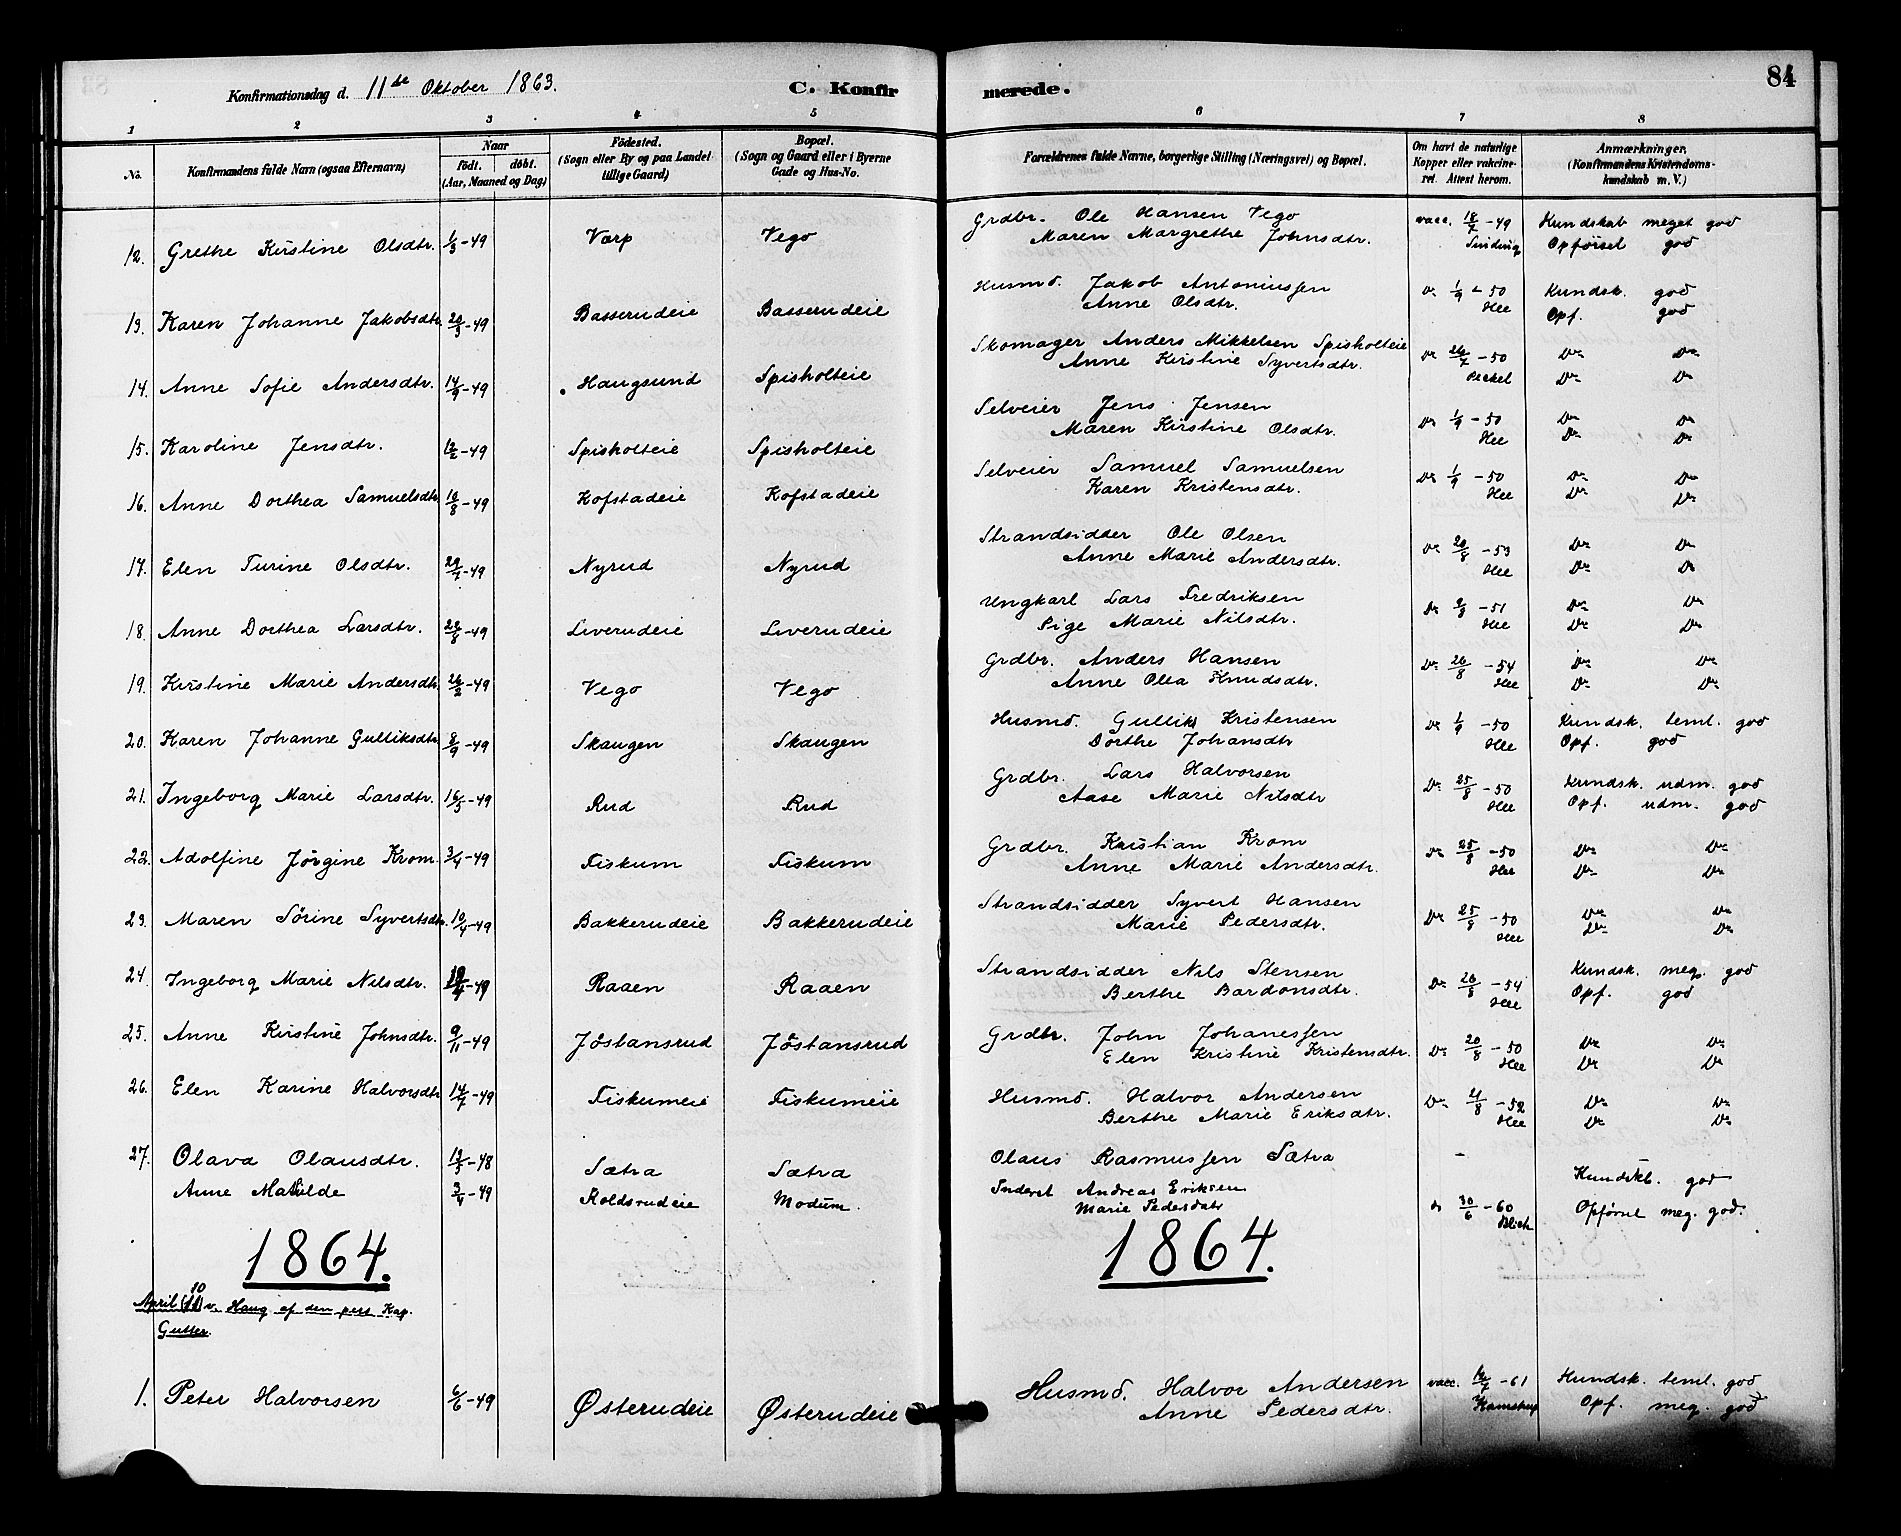 Konfirmationsdag d. 11te Oktober 1863. C. Konfirmerede. 84
1 2 3 4 5 6 7 8
No. Konfirmandens fulde Navn (ogsaa Efternavn) Naar födt. döbt. (Aar, Maaned og Dag) Födested. (Sogn eller By og paa Landet tillige Gaard) Bopæl. (Sogn og Gaard eller i Byerne Gade og Hus-No. Forældrenes fulde Navne, borgerlige Stilling (Næringsvei) og Bopæl. Om havt de naturlige Kopper eller vakcineret. Attest herom. Anmærkninger, (Konfirmandens Kristendomskundskab m. V.)
12. Grethe Kirstine Olsdtr. 1/3-49 Varp Vego Grdbr. Ole Hansen Vego vacc. 18/7-49 Kundskab meget god
Maren Margrethe Johnsdtr. Sinding Opførsel god
13. Karen Johanne Jakobsdtr. 20/3-49 Basserudeie Basserudeie Husmd. Jakob Antoniussen Do 1/9-50 Kundsk. god
Anne Olsdtr. Hee Opf. god
14. Anne Sofie Andersdtr. 14/9-49 Haugsund Spisholteie Skomager Anders Mikkelsen Spisholteie Do 26/7-50 Do Do
Anne Kirstine Syvertsdtr. Do Do
15. Karoline Jensdtr. -49 Spisholteie Spisholteie Selveier Jens Jensen Do 1/9-50 Do Do
Maren Kirstine Olsdtr. Hee Do Do
16. Anne Dorthea Samuelsdtr. 10/8-49 Kofstadeie Kofstadeie Selveier Samuel Samuelsen Do 1/9-50 Do Do
Karen Kristensdtr. Hee Do Do
17. Elen Turine Olsdtr. 29/7-49 Nyrud Nyrud Strandsidder Ole Olsen Do 20/8-53 Do Do
Anne Marie Andersdtr. Hee Do Do
18. Anne Dorthea Larsdtr. 22/8-49 Liverudeie Liverudeie Ungkarl Lars Fredriksen Do 9/8-51 Do Do
Pige Marie Nilsdtr. Hee Do Do
19. Kirstine Marie Andersdtr. 26/2-49 Vego Vego Grdbr. Anders Hansen Do 20/8-54 Do Do
Anne Olea Knudsdtr. Hee Do Do
20. Karen Johanne Gulliksdtr. 8/9-49 Skaugen Skaugen Husmd. Gullik Kristensen Do 1/9-50 Kundsk. teml. god
Dorthe Johansdtr Hee Opf. god
21. Ingeborg Marie Larsdtr. 16/3-49 Rud Rud Grdbr. Lars Halvorsen Do 25/8-50 Kundsk. udm. god
Aase Marie Nilsdtr Hee Opf. udm. god
22. Adolfine Jörgine Krom. 3/4-49 Fiskum Fiskum Grdbr. Kristian Krom Do 25/8-50 Do Do
Anne Marie Andersdtr. Hee Do Do
23. Maren Sörine Syvertsdtr. 10/4-49 Bakkerudeie Bakkerudeie Strandsidder Syvert Hansen Do 25/8-50 Do Do
Marie Pedersdtr. Hee Do Do
24. Ingeborg Marie Nilsdtr. -49 Raaen Raaen Strandsidder Nils Stensen Do 20/8-54 Kundsk. meg. god
Berthe Bardonsdtr. Hee Opf. god
25. Anne Kirstine Johnsdtr. 9/11-49 Jöstansrud Jöstansrud Grdbr. John Johanessen Do 20/8-50 Do Do
Elen Kristine Kristensdtr. Hee Do Do
26. Elen Karine Halvorsdtr 14/7-49 Fiskumeie Fiskumeie Husmd. Halvor Andersen Do 21/8-52 Do Do
Berthe Marie Eriksdtr. Hee Do Do
27. Olava Olausdtr. 12/3-48 Sætra Sætra Olaus Rasmussen Sætra -
Anne Mathilde 3/4-49 Roldsrudeie Modum. Inderst Andreas Eriksen Kundskb. god
Marie Pedersdatr Do 30/6-60 Blich Opførsel meg. god.
1864. 1864.
April (10) v. Haug af den pers. Kap.
Gutter.
1. Peter Halvorsen 6/6-49 Østerudeie Østerudeie Husmd. Halvor Andersen vacc. 16/7-61 Kundsk. teml. god
Anne Pedersdtr. Kamstrup Opf. meg. god